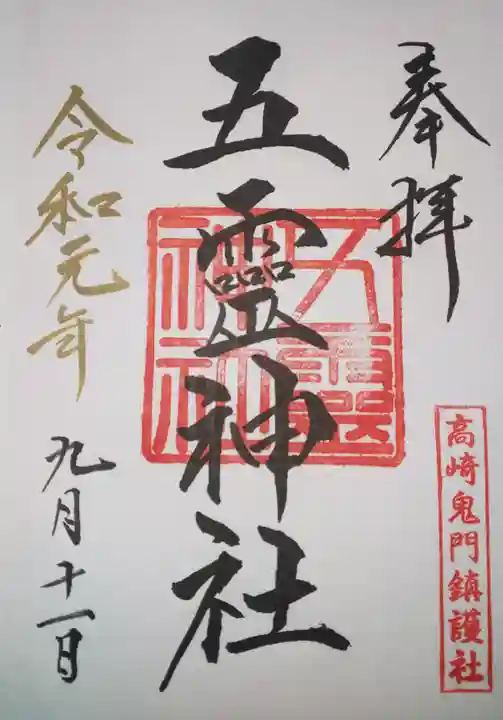 奉拝
高崎鬼門鎮護社
五靈神社
五靈神社
令和元年
九月十一日